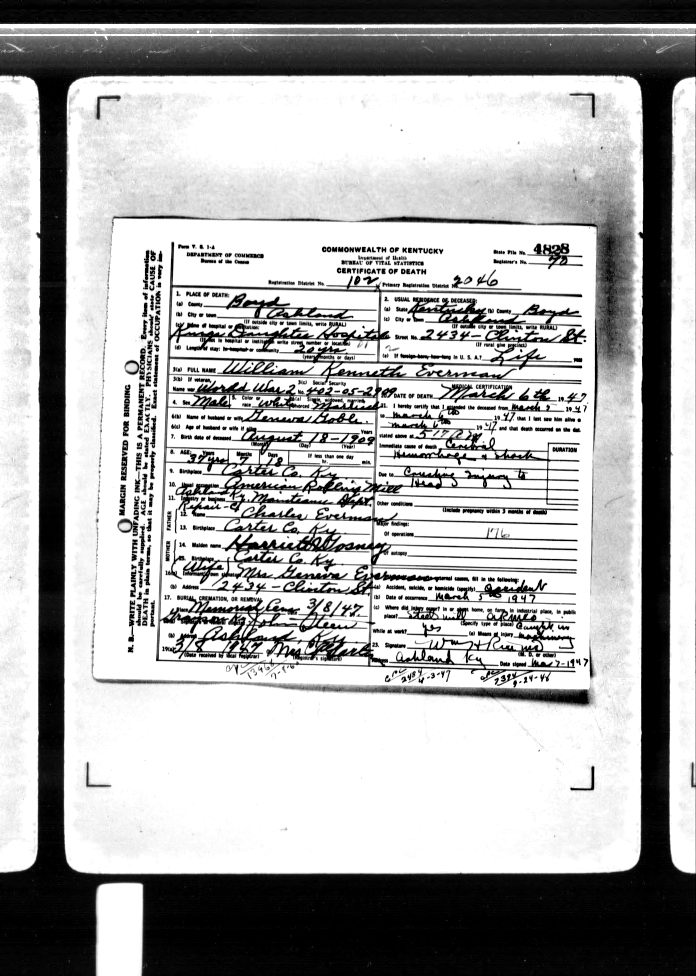 Form V. S. 1-A
DEPARTMENT OF COMMERCE
Bureau of the Census
COMMONWEALTH OF KENTUCKY
Department of Health
BUREAU OF VITAL STATISTICS
CERTIFICATE OF DEATH
State File No. 4828
Registrar's No. 90
Registration District No. 102 Primary Registration District No. 2046
MARGIN RESERVED FOR BINDING
N. B.—WRITE PLAINLY WITH UNFADING INK—THIS IS A PERMANENT RECORD. Every item of information
should be carefully supplied. AGE should be stated EXACTLY. PHYSICIANS should state CAUSE OF
DEATH in plain terms, so that it may be properly classified. Exact statement of OCCUPATION is very im-
portant.
1. PLACE OF DEATH:
(a) County Boyd
(b) City or town Ashland
(If outside city or town limits, write RURAL)
(c) Name of hospital or institution:
Kings Daughter Hospital
(If not in hospital or institution write street number or location)
(d) Length of stay: In hospital or community 20 yrs
(years, months or days)
2. USUAL RESIDENCE OF DECEASED:
(a) State Kentucky (b) County Boyd
(c) City or town Ashland
(If outside city or town limits, write RURAL)
Street No. 2434 - Clinton St.
(If rural give precinct)
(e) If foreign born, how long in U. S. A.? Life
3(a) FULL NAME William Kenneth Everman
3(b) If veteran,
Name war World War 2
3(c) Social Security
No. 402-05-2909
4. Sex Male 5. Color or race White 6(a) Single, widowed, married, divorced Married
6(b) Name of husband or wife Geneva Boble
6(c) Age of husband or wife if alive Years
7. Birth date of deceased August 18-1909
(Month) (Day) (Year)
8. AGE: Years Months Days If less than one day
37 yrs 7 18 min.
9. Birthplace Carter Co. Ky
10. Usual occupation American Rolling Mill
11. Industry or business Ashland Ky. Maintenance Dept.
Repair-
FATHER
12. Name Charles Everman
13. Birthplace Carter Co. Ky
MOTHER
14. Maiden name Harriett
15. Birthplace Carter Co. Ky
(Wife)
16(a) Informant's own signature Mrs Geneva Everman
(b) Address 2434 - Clinton St
17. BURIAL, CREMATION, OR REMOVAL
Memorial 3/8/47
John Steen
(b) Address Ashland, Ky
19(a) 3/8 1947 Mrs
(Date received by local registrar) (Registrar's signature)
MEDICAL CERTIFICATION
20. DATE OF DEATH March 6th 1947
21. I hereby certify that I attended the deceased from March 5 1947
to March 6th 1947 that I last saw him alive on
March 6th 1947 and that death occurred on the date
stated above at
Immediate cause of death Cerebral
Hemorrhage & Shock
DURATION
Due to Crushing Injury to
Head
Other conditions
(Include pregnancy within 3 months of death)
Major findings:
Of operations 176
Of autopsy
22. If death was due to external causes, fill in the following:
(a) Accident, suicide, or homicide (specify) accident
(b) Date of occurrence March 5th 1947
(c) Where did injury occur? in or about home, on farm, in industrial place, in public
place? Steel mill ARMCO
(Specify type of place)
While at work? yes (e) Means of injury Caught in
machinery
23. Signature Wm H
(M. D. or other)
Address Ashland Ky Date signed Mar 7-1947